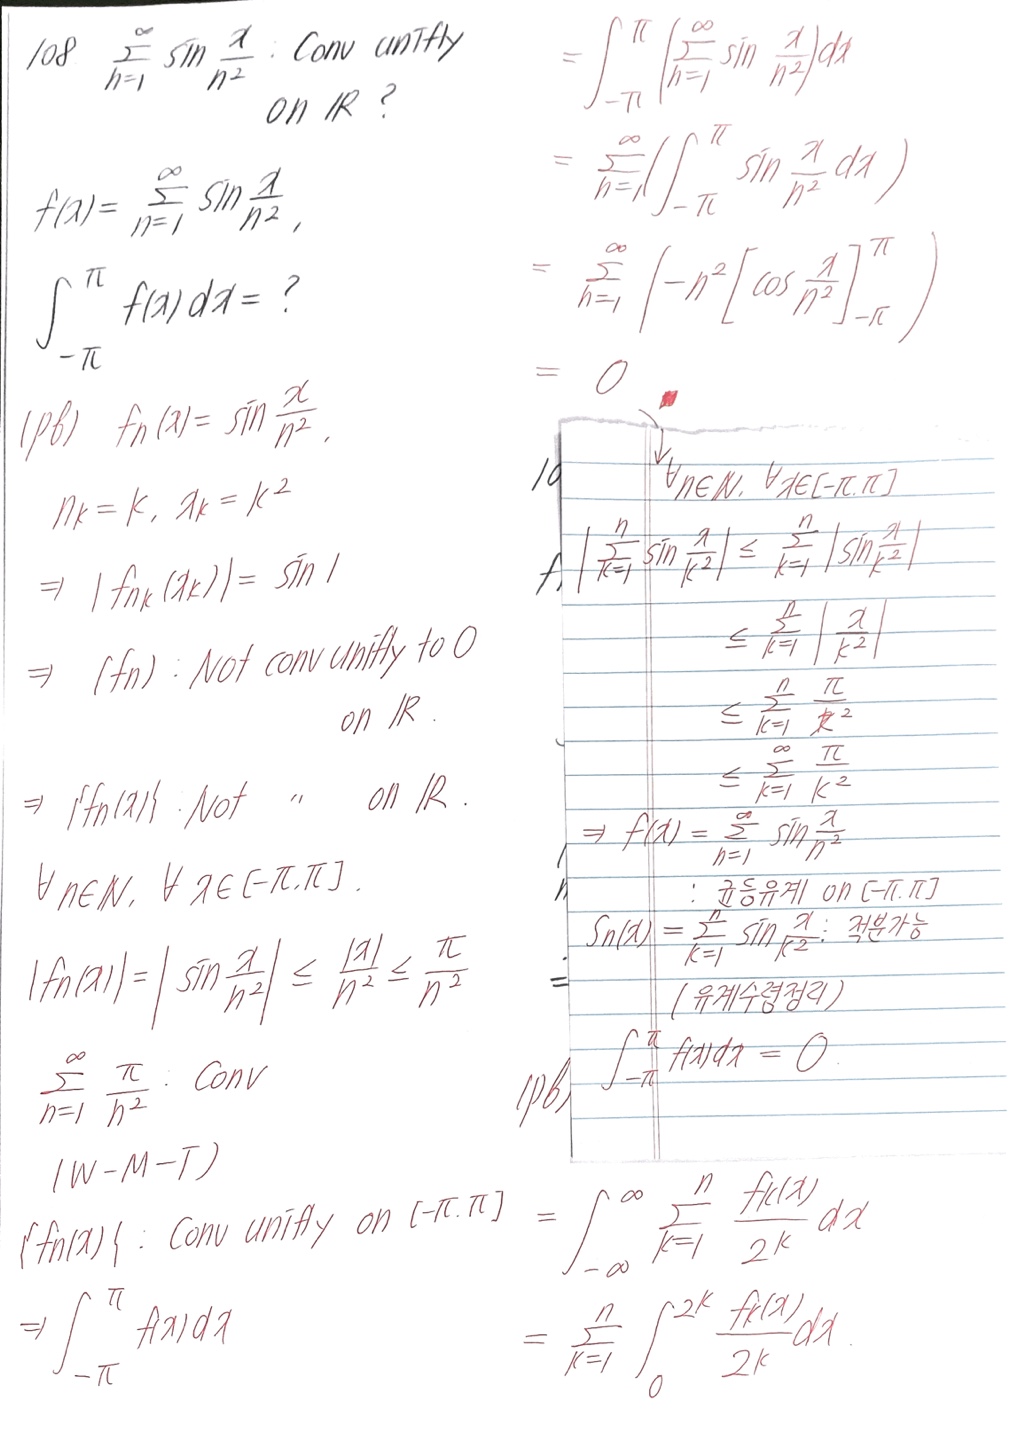 108 ∞Σn=1 sin x/n² : Conv unifly
on ℝ ?
f(x) = ∞Σn=1 sin x/n²,
∫_{-π}^{π} f(x)dx = ?
(pb) fn(x) = sin x/n².
nk = k, xk = k²
⇒ |fnk(xk)| = sin 1
⇒ (fn) : Not conv unifly to 0
on ℝ.
⇒ {fn(x)} : Not 〃 on ℝ.
∀n∈ℕ, ∀x∈[-π.π].
|fn(x)| = |sin x/n²| ≤ |x|/n² ≤ π/n²
∞Σn=1 π/n² : Conv
(W-M-T)
{fn(x)} : Conv unifly on [-π.π]
⇒ ∫_{-π}^{π} f(x)dx
= ∫_{-π}^{π} (∞Σn=1 sin x/n²)dx
= ∞Σn=1 (∫_{-π}^{π} sin x/n² dx)
= ∞Σn=1 (-n² [cos x/n²]_{-π}^{π})
= 0
10
∀n∈ℕ. ∀x∈[-π.π]
f
|nΣk=1 sin x/k²| ≤ nΣk=1 |sin x/k²|
≤ nΣk=1 |x/k²|
≤ nΣk=1 π/k²
≤ ∞Σk=1 π/k²
⇒ f(x) = ∞Σn=1 sin x/n²
: 균등유계 on [-π.π]
Sn(x) = nΣk=1 sin x/k² : 적분가능
(유계수렴정리)
∫_{-π}^{π} f(x)dx = 0.
(pb)
= ∫_{-∞}^{∞} nΣk=1 fk(x)/2k dx
= nΣk=1 ∫_{0}^{2k} fk(x)/2k dx.